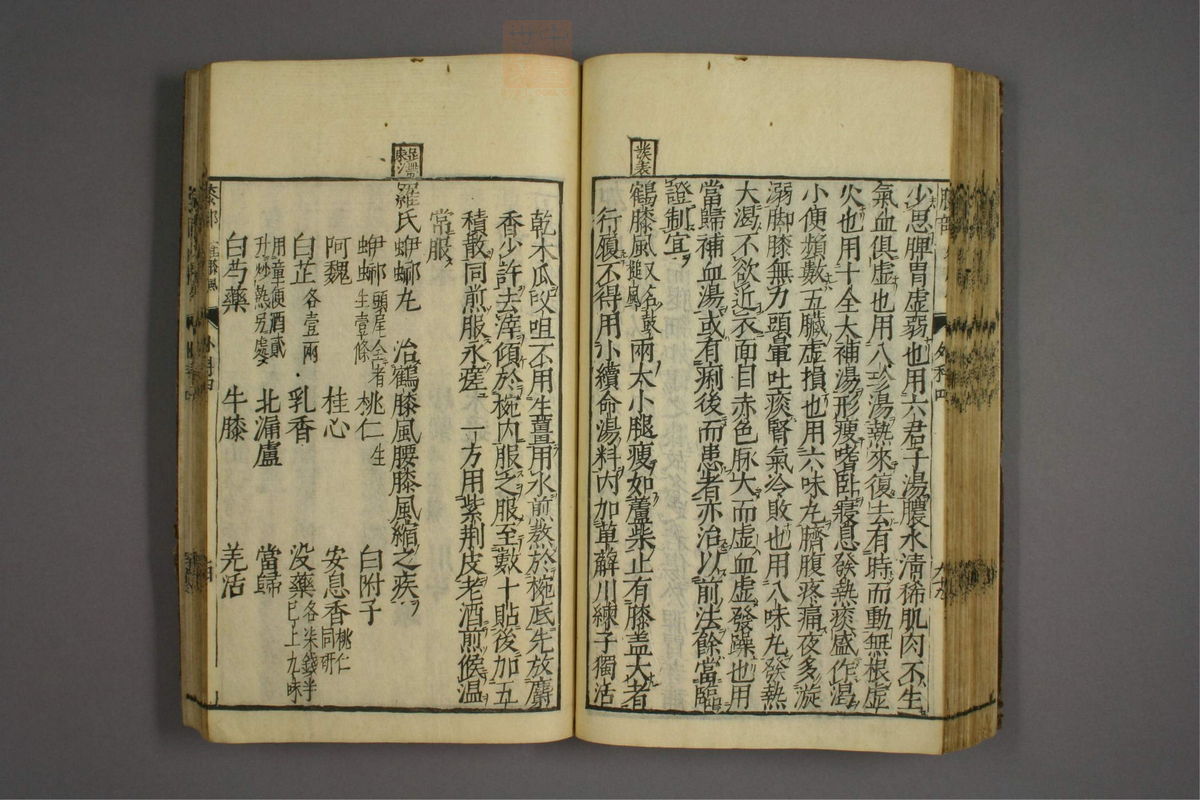 少思脾胃虛弱也用六君子湯膿水清稀肌肉不生
氣血俱虛也用八珍湯熱來復去有時而動無根虛
火也用十全大補湯形瘦嗜臥寢息發熱痰盛作渴
小便頻數五臟虛損也用六味丸臍腹疼痛夜多漩
溺脚膝無力頭暈吐痰腎氣冷敗也用八味丸發熱
大渴不欲近衣面目赤色脉大而虛血虛發躁也用
當歸補血湯或有痢後而患者亦治以前法餘當臨
證制宜
鶴膝風又名鼓槌風兩太小腿瘦如蘆柴止有膝盖大者
行履不得用小續命湯料内加萆薢川練子獨活
乾木瓜㕮咀不用生薑用水煎熬於椀底先放麝
香少許去滓傾於椀内服之服至數十貼後加五
積散同煎服永瘥 一方用紫荆皮老酒煎候温
常服
羅氏蛜蜵丸 治鶴膝風腰膝風縮之疾
蛜蜵頭尾全者生壹條 桃仁生 白附子
阿魏 桂心 安息香桃仁同研
白芷各壹兩 乳香 没藥各柒錢半已上九味
用童便酒貳升炒熟另處 北漏盧 當歸
白芍藥 牛膝 羌活
外科四
九十九